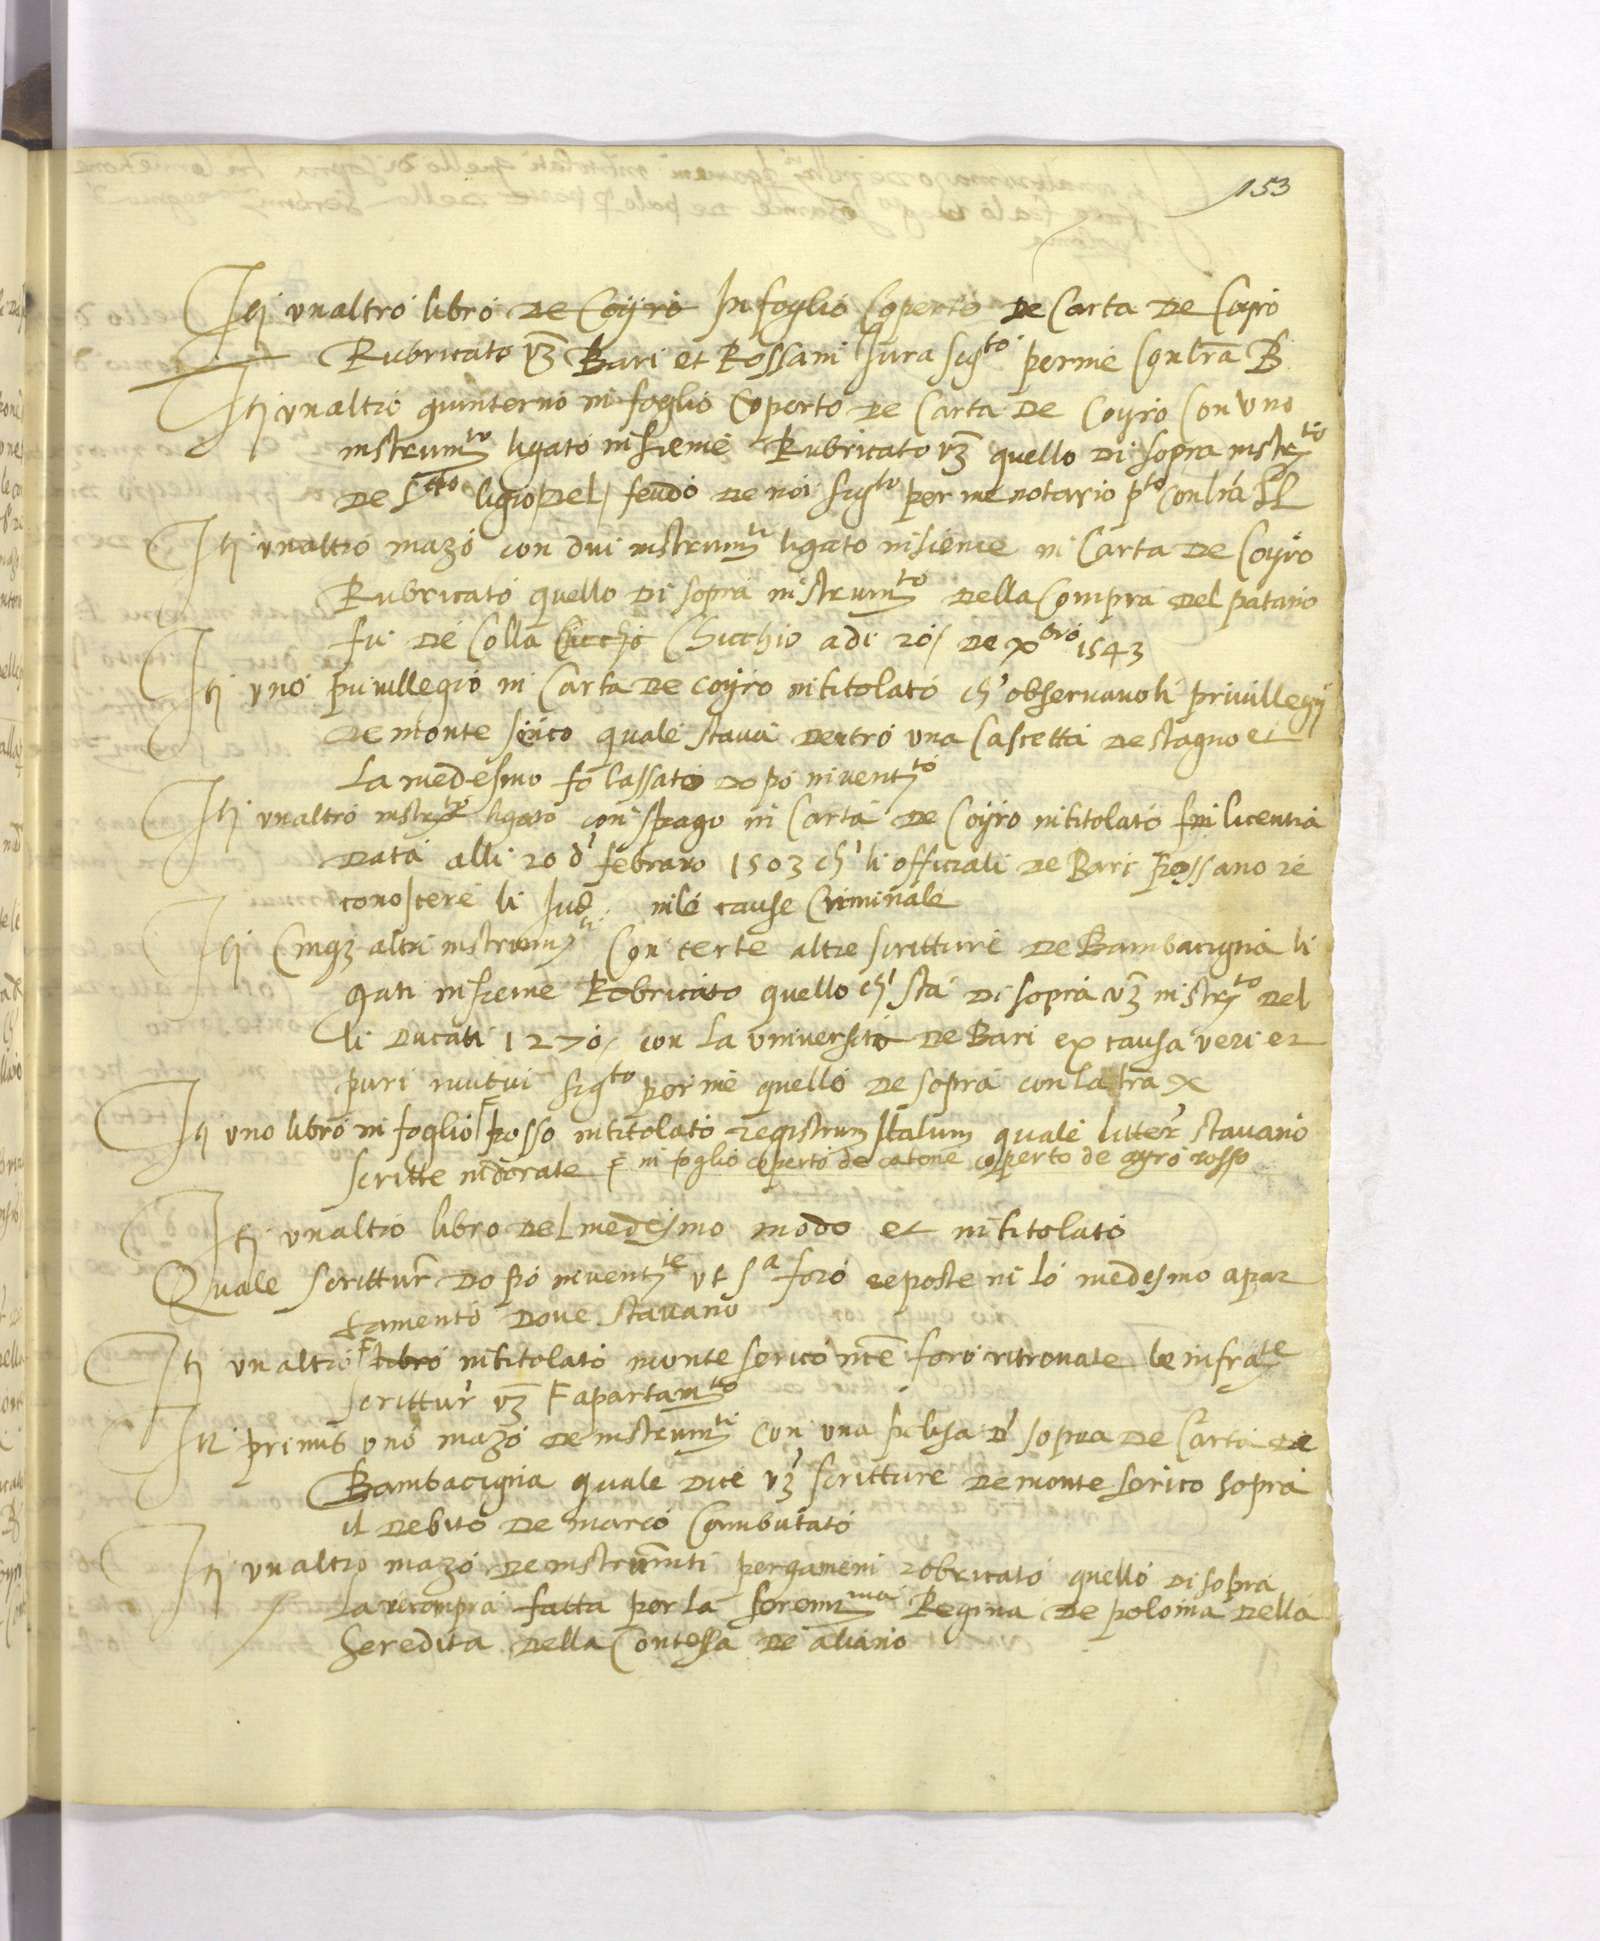 153
Itē unaltro libro de Coyro In foglio Coperto de Carta de Coyro
Rubricato vz Bari et Rossani Jura sigto per me contra B
Itē unaltro quinterno in foglio Coperto de Carta de Coyro Con uno
instrumto ligato insieme Rubricato vz quello di sopra instrto
de ligio del feudo de noi sigto per me notario pto contra
Itē unaltro mazo con dui instrumti ligato insieme in Carta de Coyro
Rubricato quello di sopra instrumto della Compra del patano
fu de Colla Cicchò Chicchio adi 20 de xbro 1543
Itē uno privillegio in Carta de coyro intitolato ch' observanoli privillegij
de monte serico quale stava dentro una Cascetta de stagno et
La medesmo fo lassato dopo inventto
Itē unaltro instrto ligato con spago in Carta de Coyro intitolato licentia
data alli 20 d' febraro 1503 ch' li offitiali de Bari Rossano
conoscere li Jud. in le cause Criminale
Itē Cinqz altri instrumti Con certe altre scritture de Bambacigna li
gati insieme Robricato quello ch' sta di sopra vz instrto del
li Ducati 1270 con la universita de Bari ex causa veri et
puri mutui sigto per me quello de sopra con la lra x
Itē uno libro in foglio rosso intitolato registrum Italum quale litter' stavano
scritte indorate in foglio coperto de catone coperto de coyro rosso
Itē unaltro libro del medesmo modo et intitolato
Quale scrittur' dopo inventte ut sa foro reposte in lo medesmo apar
tamento dove stavano
Itē unaltro libro intitolato monte serico foro ritrovate le infratte
scrittur' vz apartamto
In primis uno mazo de instrumti con una d' sopra de Carta de
Bambacigna quale dice vz scritture de monte serico sopra
il debito de marco Cambutato
Itē unaltro mazo de instrumti pergameni robricato quello di sopra
La recompra fatta per la serenma Regina de polonia della
heredita della Contessa de aliano